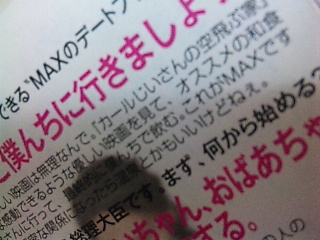 できる"MAXのデートプ
僕んちに行きましょ
しい映画は無理なんで。「カールじいさんの空飛ぶ家」
な感動できるような優しい映画を見て、オススメの和食
さんに行って、最終的に
んちで飲む。これがMAXです
関係になったら温泉とかもいいけどねぇ。
総理大臣です。まず、何から始める?
ちゃん、おばあちゃ
する。
人の